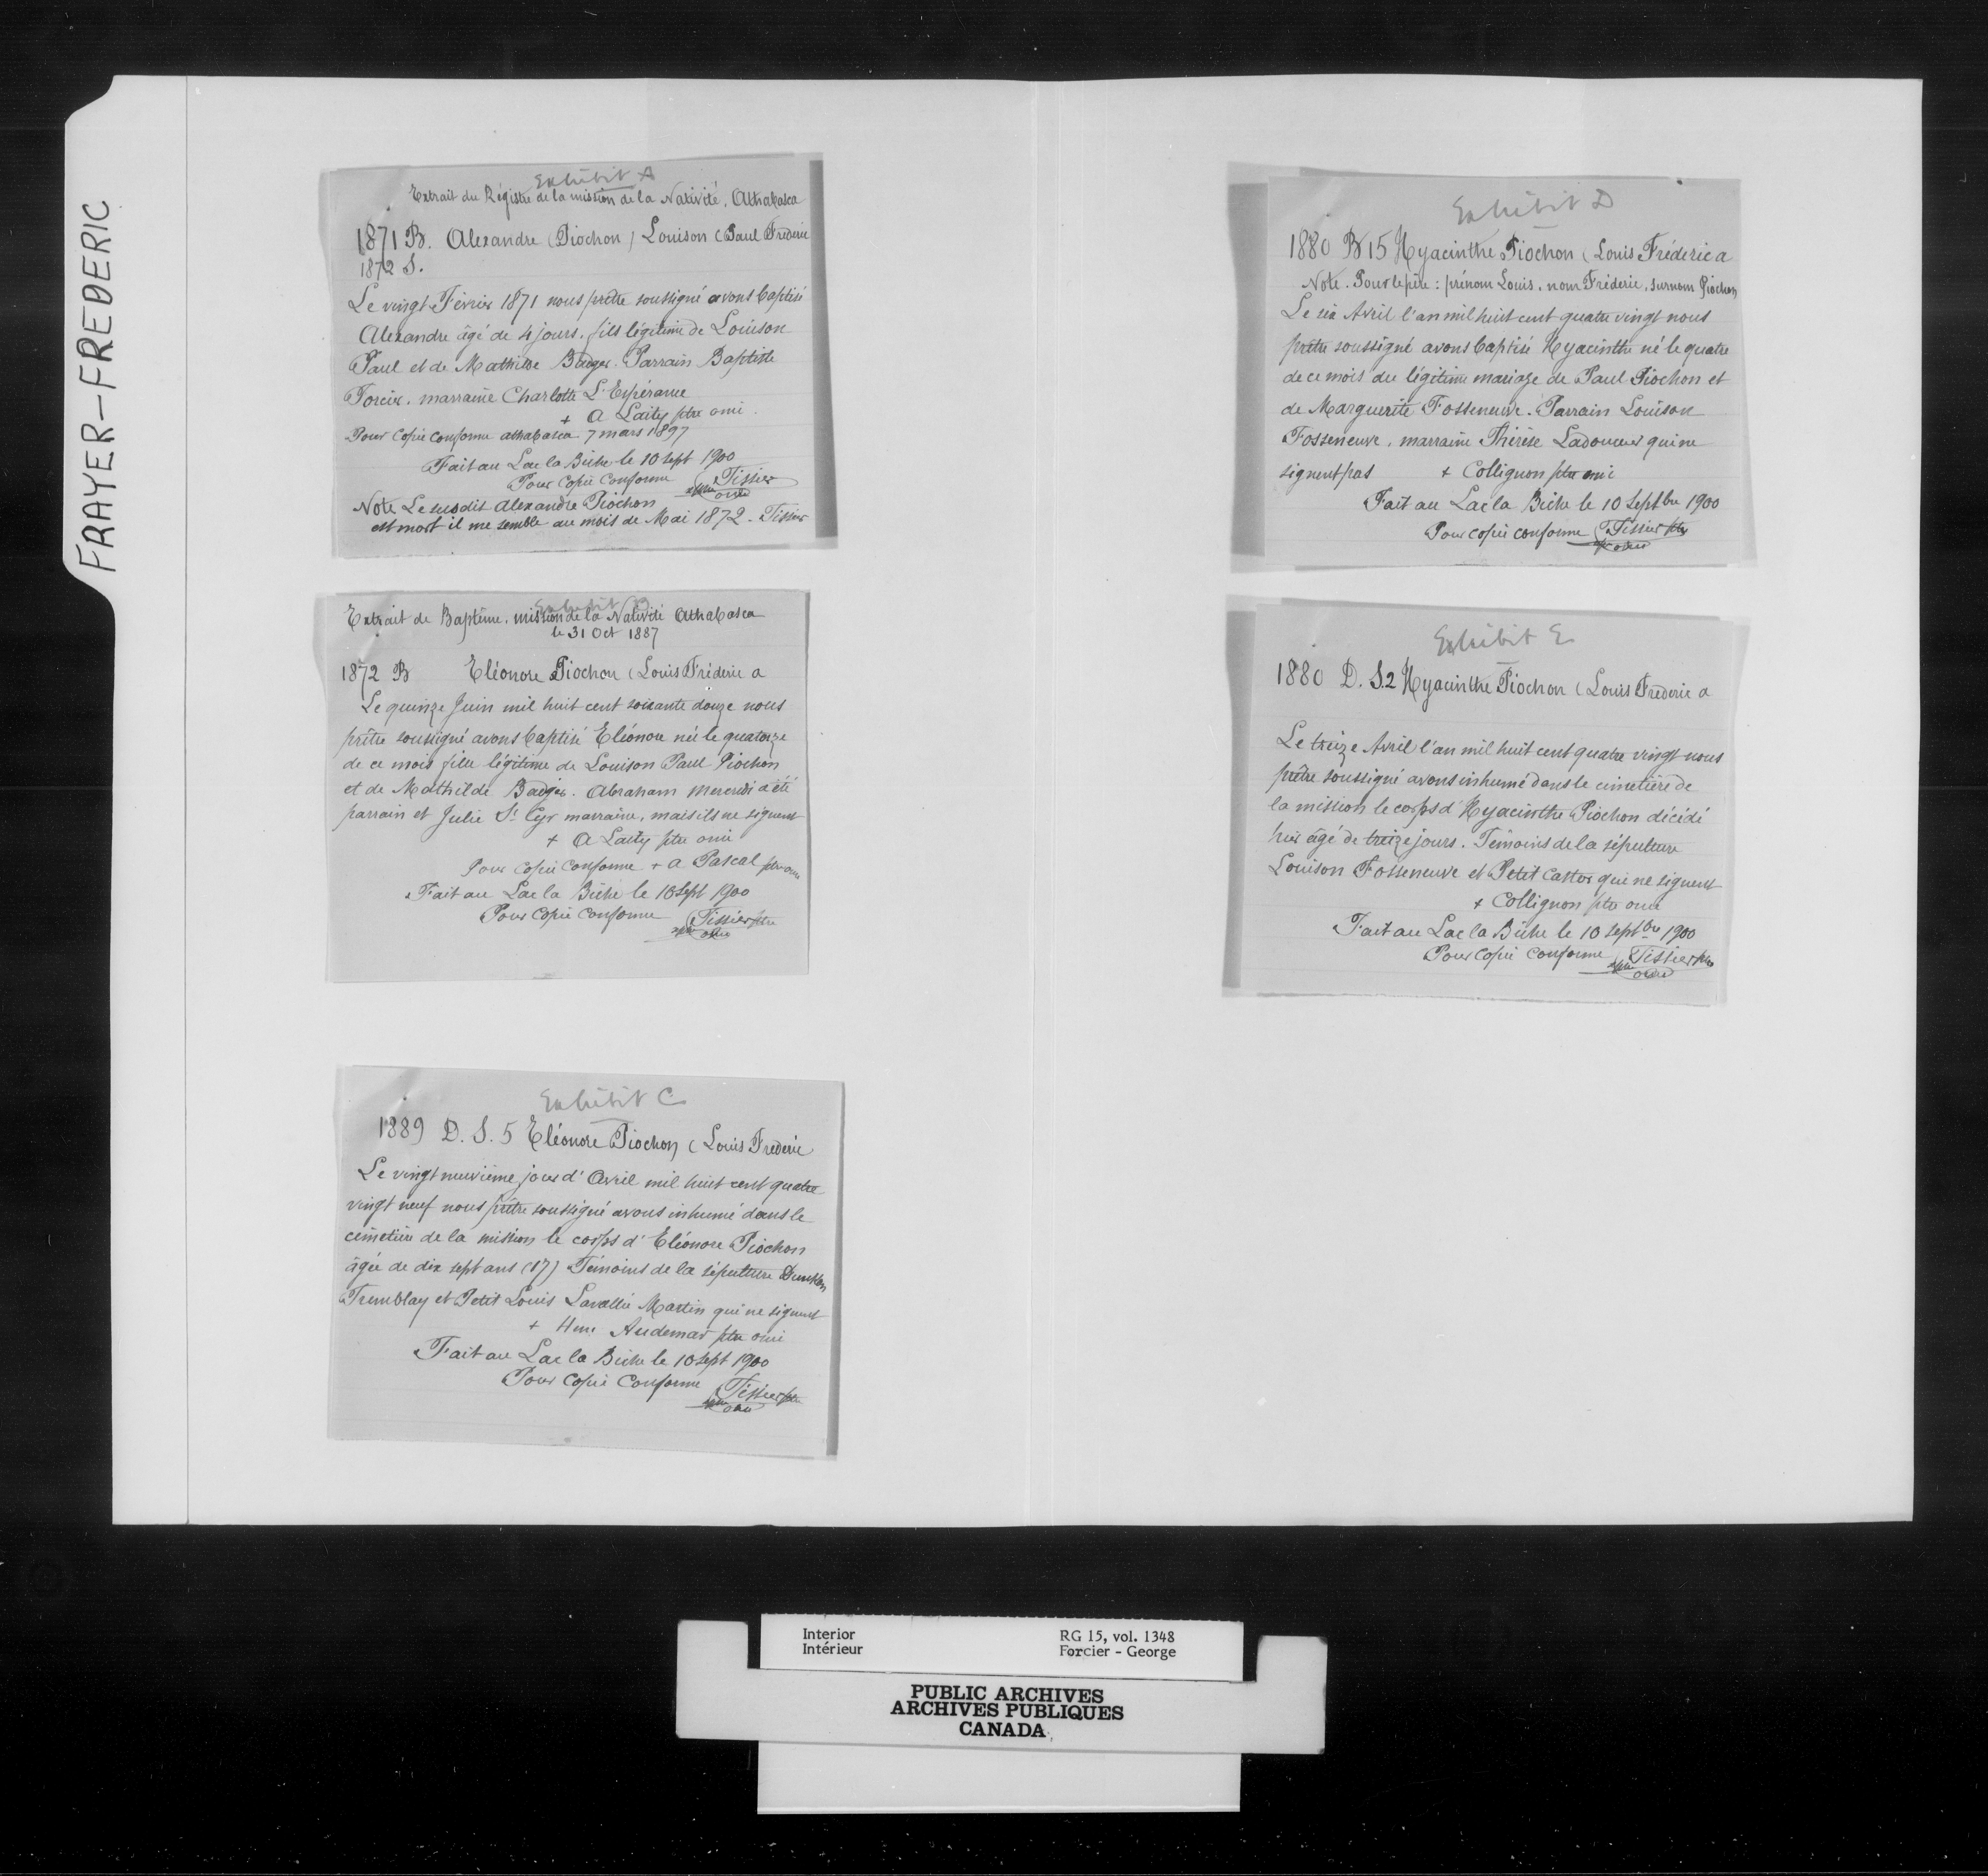 FRAYER-FREDERIC
Exhibit A
Extrait du Régistre de la mission de la Nativité, Athabasca
1871 B. Alexandre (Piochon) Louison (Paul Frederic
1872 S.
Le vingt Février 1871 nous prêtre soussigné avons baptisé
Alexandre âgé de 4 jours, fils légitime de Louison
Paul et de Mathilde Badger. Parrain Baptiste
Forcier, marraine Charlotte L'Espérance
+ A Laity ptre omi.
Pour copie conforme athabasca 7 mars 1897
Fait au Lac la Biche le 10 sept 1900
Pour copie conforme Tissier
ptre omi
Note Le susdit Alexandre Piochon
est mort il me semble au mois de Mai 1872. Tissier
Exhibit B
Extrait de Baptême, mission de la Nativité Athabasca
le 31 Oct 1887
1872 B Eléonore Piochon (Louis Fréderic a
Le quinze Juin mil huit cent soixante douze nous
prêtre soussigné avons baptisé Eléonore née le quatorze
de ce mois fille légitime de Louison Paul Piochon
et de Mathilde Badger. Abraham Mercredi a été
parrain et Julie St Cyr marraine, mais ils ne signent
+ A Laity ptre omi
Pour copie conforme + A Pascal ptre omi
Fait au Lac la Biche le 10 sept 1900
Pour copie conforme Tissier ptre
omi
Exhibit C
1889 D. S. 5 Eléonore Piochon (Louis Frederic
Le vingt neuvième jour d'Avril mil huit cent quatre
vingt neuf nous prêtre soussigné avons inhumé dans le
cimetière de la mission le corps d'Eléonore Piochon
âgée de dix sept ans (17) Témoins de la sépulture
Tremblay et Petit Louis Lavallée Martin qui ne signent
+ Henri Audemar ptre omi
Fait au Lac la Biche le 10 sept 1900
Pour copie conforme Tissier ptre
omi
Exhibit D
1880 B 15 Hyacinthe Piochon (Louis Fréderic a
Note. Pour le père : prénom Louis, nom Fréderic, surnom Piochon
Le six Avril l'an mil huit cent quatre vingt nous
prêtre soussigné avons baptisé Hyacinthe né le quatre
de ce mois du légitime mariage de Paul Piochon et
de Marguerite Fosseneuve. Parrain Louison
Fosseneuve, marraine Thérèse Ladouceur qui ne
signent pas + Collignon ptre omi
Fait au Lac la Biche le 10 Septbre 1900
Pour copie conforme Tissier ptre
omi
Exhibit E
1880 D. S. 2 Hyacinthe Piochon (Louis Frederic a
Le treize Avril l'an mil huit cent quatre vingt nous
prêtre soussigné avons inhumé dans le cimetière de
la mission le corps d'Hyacinthe Piochon décédé
hier âgé de treize jours. Témoins de la sépulture
Louison Fosseneuve et Petit Castor qui ne signent
+ Collignon ptre omi
Fait au Lac la Biche le 10 septbre 1900
Pour copie conforme Tissier ptre
omi
Interior RG 15, vol. 1348
Intérieur Forcier - George
PUBLIC ARCHIVES
ARCHIVES PUBLIQUES
CANADA